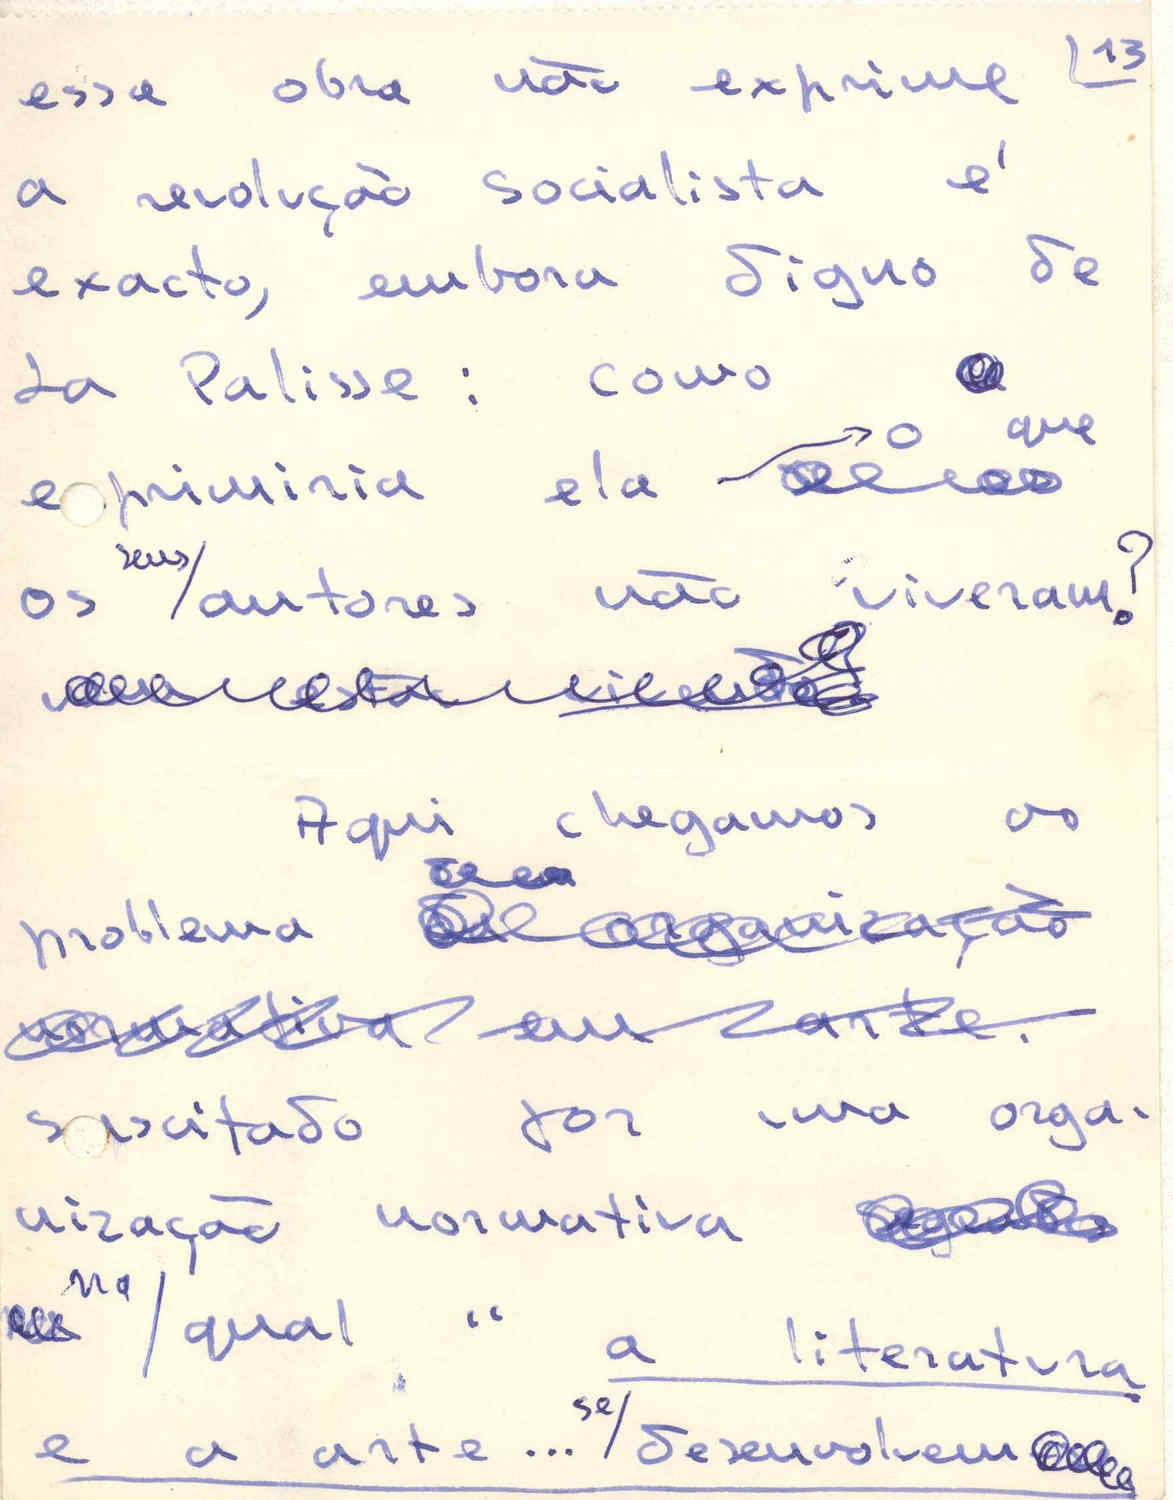 13
essa obra não exprime
a revolução socialista é
exacto, embora digno de
La Palisse: como
exprimiria ela o que
os seus autores não viveram?
Aqui chegamos ao
problema de organização
normativa em arte.
suscitado por uma orga-
nização normativa
na qual " a literatura
e a arte... se desenvolvem